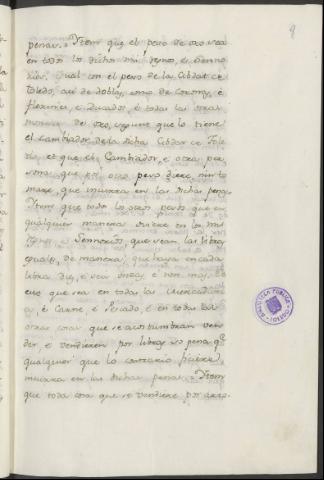 8
penas. Ytem que el peso de oro sea
en todos los dichos mis reynos, e Senno
rios, igual con el peso de la Cibdat de
Toledo, asi de doblas, como de coronas, e
florines, e ducados, e todas las otras
monedas de oro, segunt que lo tiene
el Cambiador de la dicha Cibdat de Tole
do, et que el Cambiador, e otra per
sona que por otro peso diere, nin to
mare, que incurra en las dichas penas.
Ytem que todos los otros pesos que en
qualquier manera oviere en los mis
Regnos, e Sennorios, que sean las libras
eguales, de manera, que haya en cada
libra diez, e seis onzas, e non mas, e
esto que sea en todas las Mercadurias
e Carne, e Pescado, e en todas las
otras cosas que se acostumbran ven
der e vendieren por libras, so pena q.e
qualquier que lo contrario ficiere
incurra en las dichas penas. Ytem
que toda cosa que se vendiere por arro
BIBLIOTECA PUBLICA TOLEDO